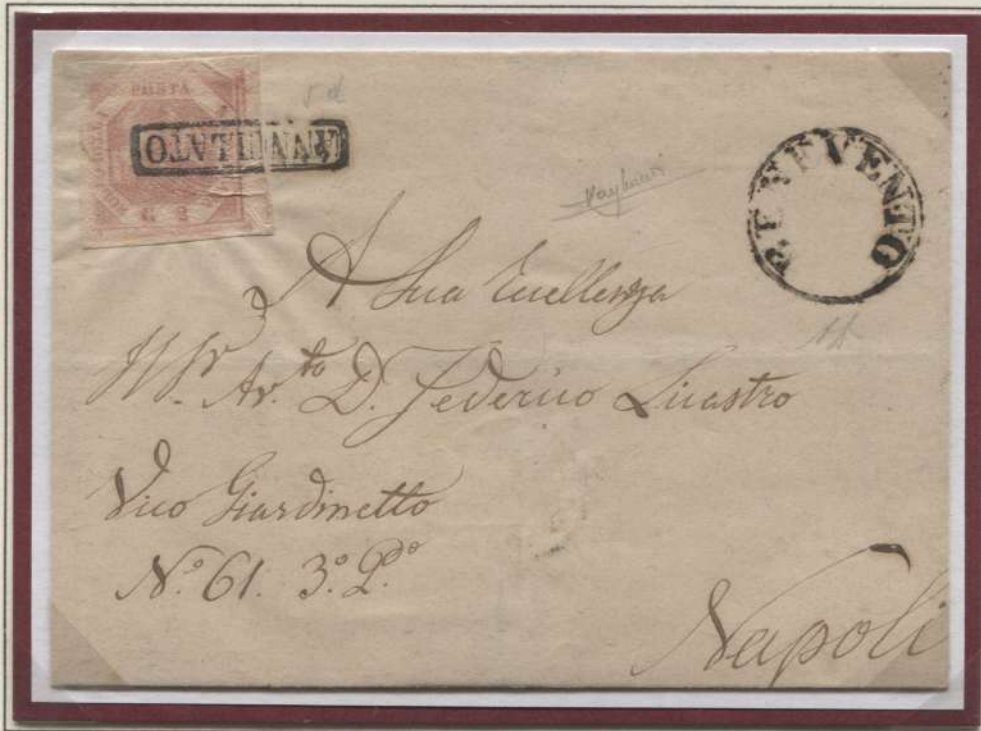 POSTA
G 2
ANNULLATO
BENEVENTO
A Sua Eccellenza
Il Sr. Av.to D. Federico Licastro
Vico Giardinetto
N.o 61. 3.o P.o
Napoli